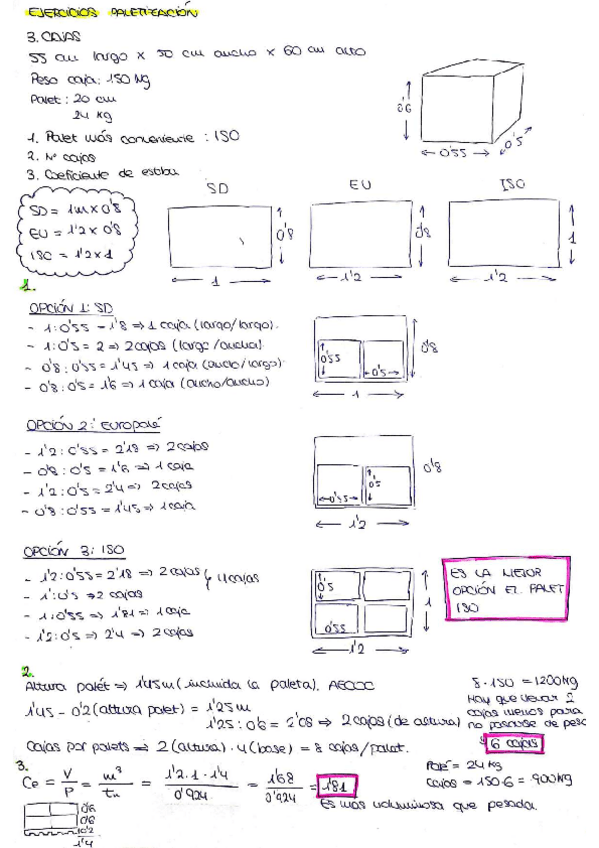 EJERCICIOS PALETIZACIÓN
3. CAJAS
55 cm largo x 50 cm ancho x 60 cm alto
Peso caja: 150 kg
Palet: 20 cm
24 kg
0'6
0'55
0'5
1. Palet más conveniente: ISO
2. Nº cajas
3. Coeficiente de estiba
SD EU ISO
SD = 1m x 0'8
EU = 1'2 x 0'8
ISO = 1'2 x 1
0'8 0'8 1
1 1'2 1'2
1.
OPCIÓN 1: SD
- 1:0'55 = 1'8 => 1 caja (largo/largo).
- 1:0'5 = 2 => 2 cajas (largo/ancho)
- 0'8:0'55 = 1'45 => 1 caja (ancho/largo)
- 0'8:0'5 = 1'6 => 1 caja (ancho/ancho)
0'55 0'5 0'8
1
OPCIÓN 2: Europalé
- 1'2:0'55 = 2'18 => 2 cajas
- 0'8:0'5 = 1'6 => 1 caja
- 1'2:0'5 = 2'4 => 2 cajas
- 0'8:0'55 = 1'45 => 1 caja
0'55 0'5 0'8
1'2
OPCIÓN 3: ISO
- 1'2:0'55 = 2'18 => 2 cajas 4 cajas
- 1:0'5 => 2 cajas
- 1:0'55 => 1'81 => 1 caja
- 1'2:0'5 => 2'4 => 2 cajas
0'5 0'55 1
1'2
ES LA MEJOR
OPCIÓN EL PALET
ISO
2.
Altura palét => 1'45m (incluida la paleta). AECOC
1'45 - 0'2 (altura palet) = 1'25m
1'25:0'6 = 2'08 => 2 cajas (de altura)
Cajas por palets => 2 (altura) · 4 (base) = 8 cajas/palat.
8·150 = 1200kg
Hay que llevar 2
cajas menos para
no pasarse de peso
6 cajas
3.
Ce = V/P = m³/tn = 1'2·1·1'4/0'924 = 1'68/0'924 = 1'81
Es más voluminosa que pesada
Palé = 24 kg
Cajas = 150·6 = 900kg
0'6
0'6
0'2
1'4